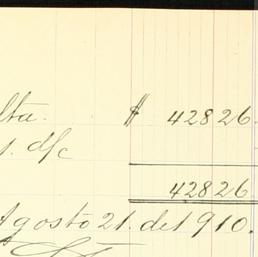 lta. $ 42826.
1. d/c
42826
Agosto 21. del 910.